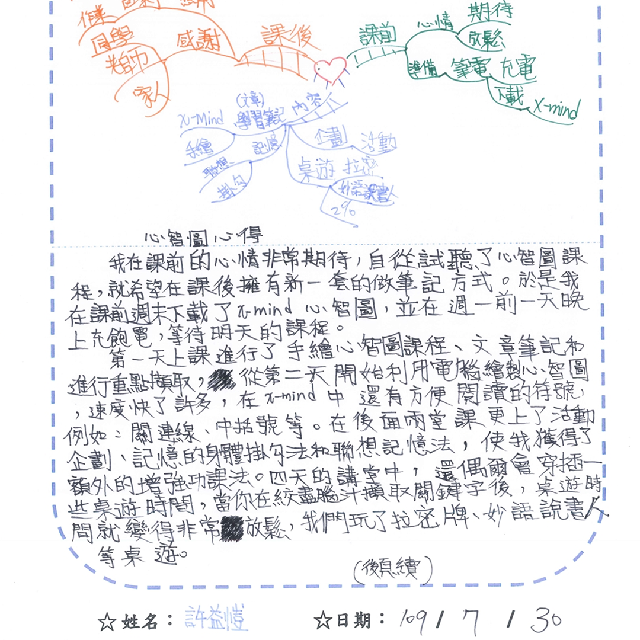 作業
同學
老師
家人
感謝
課後
課前
心情
期待
放鬆
準備
筆電
充電
下載
X-mind
X-mind
手繪
(文章)
學習筆記
內容
記憶
聯想
掛勾
企劃
活動
桌遊
拉密
妙語說書人
心智圖心得
我在課前的心情非常期待,自從試聽了心智圖課
程,就希望在課後擁有新一套的做筆記方式。於是我
在課前週末下載了x-mind心智圖,並在週一前一天晚
上充飽電,等待明天的課程。
第一天上課進行了手繪心智圖課程、文章筆記和
進行重點擷取,從第二天開始利用電腦繪製心智圖
,速度快了許多,在x-mind中還有方便閱讀的符號,
例如:關連線、中括號等。在後面兩堂課更上了活動
企劃、記憶的身體掛勾法和聯想記憶法,使我獲得了
額外的增強功課法。四天的講堂中,還偶爾會穿插一
些桌遊時間,當你在絞盡腦汁擷取關鍵字後,桌遊時
間就變得非常放鬆,我們玩了拉密牌、妙語說書人
等桌遊。
(後頁續)
☆姓名:許益愷 ☆日期:109/7/30